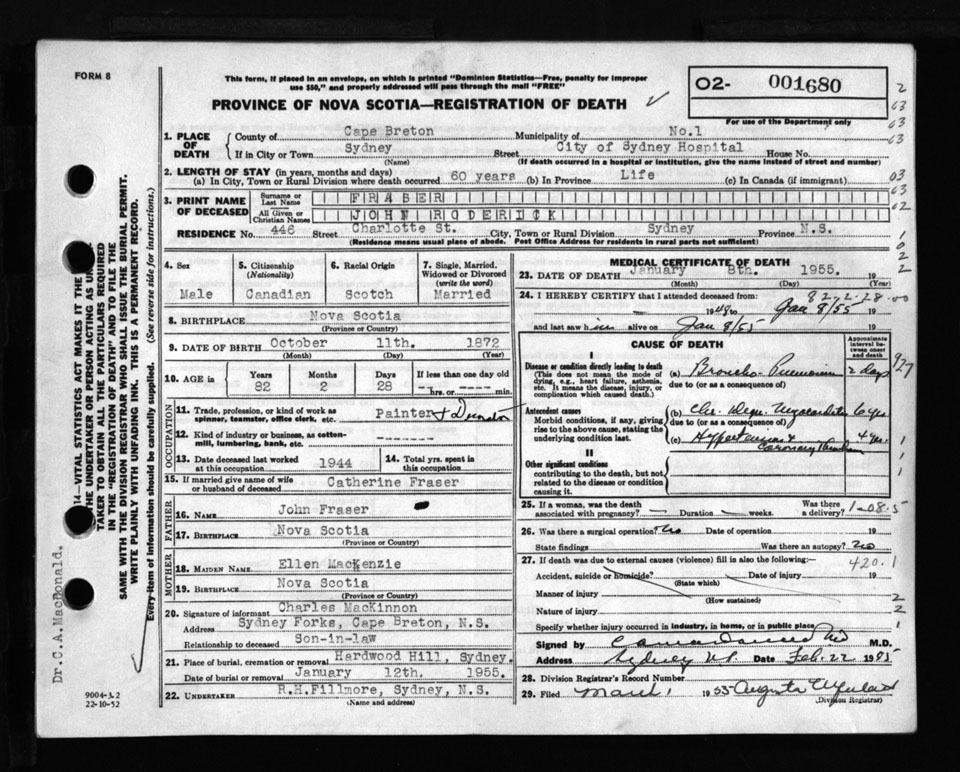 FORM 8
This form, if placed in an envelope, on which is printed "Dominion Statistics—Free, penalty for improper
use $50," and properly addressed will pass through the mail "FREE"
PROVINCE OF NOVA SCOTIA—REGISTRATION OF DEATH
O2- 001680
For use of the Department only
2
63
63
63
03
63
62
1
0
2
2
1. PLACE OF DEATH
County of Cape Breton Municipality of No.1
If in City or Town Sydney Street City of Sydney Hospital House No.
(Name) (If death occurred in a hospital or institution, give the name instead of street and number)
2. LENGTH OF STAY (in years, months and days)
(a) In City, Town or Rural Division where death occurred 60 years (b) In Province Life (c) In Canada (if immigrant)
3. PRINT NAME OF DECEASED
Surname or Last Name FRASER
All Given or Christian Names JOHN RODERICK
RESIDENCE No. 446 Street Charlotte St. City, Town or Rural Division Sydney Province N.S.
(Residence means usual place of abode. Post Office Address for residents in rural parts not sufficient)
4. Sex
Male
5. Citizenship
(Nationality)
Canadian
6. Racial Origin
Scotch
7. Single, Married,
Widowed or Divorced
(write the word)
Married
8. BIRTHPLACE Nova Scotia
(Province or Country)
9. DATE OF BIRTH October 11th. 1872
(Month) (Day) (Year)
10. AGE in
Years Months Days If less than one day old
82 2 28 hrs. or min.
OCCUPATION
11. Trade, profession, or kind of work as
spinner, teamster, office clerk, etc. Painter
12. Kind of industry or business, as cotton-
mill, lumbering, bank, etc. -------
13. Date deceased last worked
at this occupation 1944
14. Total yrs. spent in
this occupation
15. If married give name of wife
or husband of deceased Catherine Fraser
FATHER
16. Name John Fraser
17. Birthplace Nova Scotia
(Province or Country)
MOTHER
18. Maiden Name Ellen MacKenzie
19. Birthplace Nova Scotia
(Province or Country)
20. Signature of informant Charles MacKinnon
Address Sydney Forks, Cape Breton, N.S.
Relationship to deceased Son-in-law
21. Place of burial, cremation or removal Hardwood Hill, Sydney.
Date of burial or removal January 12th. 1955.
22. Undertaker R.H.Fillmore, Sydney, N.S.
(Name and address)
MEDICAL CERTIFICATE OF DEATH
23. DATE OF DEATH January 8th. 1955. 19
(Month) (Day) (Year)
24. I HEREBY CERTIFY that I attended deceased from: 82-2-28-00
1948 to Jan 8/55
and last saw him alive on Jan 8/55
CAUSE OF DEATH
Approximate
interval be-
tween onset
and death
I
Disease or condition directly leading to death
(This does not mean the mode of
dying, e.g., heart failure, asthenia,
etc. It means the disease, injury, or
complication which caused death.)
(a) Broncho-Pneumonia 2 days
due to (or as a consequence of)
927
Antecedent causes
Morbid conditions, if any, giving
rise to the above cause, stating the
underlying condition last.
(b) Chr. Degn. Myocarditis 6 yrs
due to (or as a consequence of)
(c) Hypertension & 4 yrs.
Coronary
II
Other significant conditions
contributing to the death, but not
related to the disease or condition
causing it.
1
1
1
25. If a woman, was the death
associated with pregnancy? — Duration — weeks. Was there
a delivery?
1-08-5
26. Was there a surgical operation? No Date of operation 19
State findings Was there an autopsy? No
27. If death was due to external causes (violence) fill in also the following:
420.1
Accident, suicide or homicide? Date of injury 19
(State which)
Manner of injury 2
(How sustained)
Nature of injury 2
Specify whether injury occurred in industry, in home, or in public place 1
Signed by M.D.
Address Sydney N.S. Date Feb. 22 1955
28. Division Registrar's Record Number
29. Filed March 1 1955
(Division Registrar)
THE UNDERTAKER OR PERSON ACTING AS
TAKER TO OBTAIN ALL THE PARTICULARS REQUIRED
IN THE "REGISTRATION OF DEATH" AND TO FILE THE
SAME WITH THE DIVISION REGISTRAR WHO SHALL ISSUE THE BURIAL PERMIT.
WRITE PLAINLY WITH UNFADING INK. THIS IS A PERMANENT RECORD.
Every item of information should be carefully supplied. (See reverse side for instructions.)
14—VITAL STATISTICS ACT MAKES IT THE
Dr.C.A.MacDonald.
9004-3.2
22-10-52